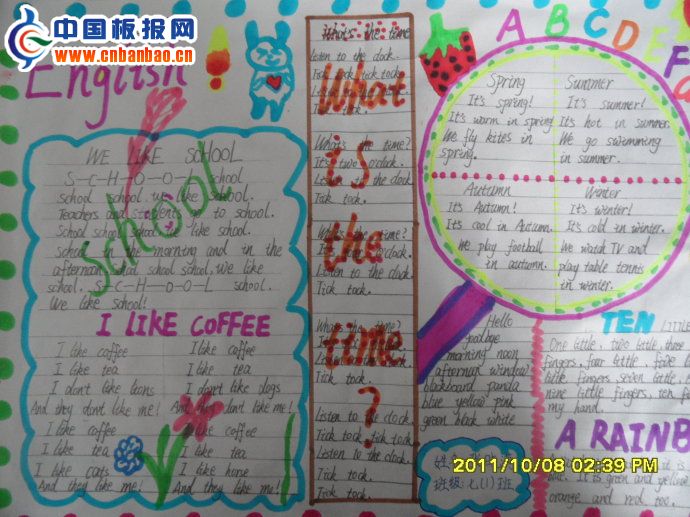 中国板报网
www.cnbanbao.cn
English
WE LIKE SCHOOL
S-C-H-O-O-L school
school school we like school.
Teachers and students go to school.
School school school we like school.
School in the morning and in the
afternoon school school school. We like
school. S-C-H-O-O-L school.
We like School!
School
I LIKE COFFEE
I like coffee I like coffee
I like tea I like tea
I don't like lions I don't like dogs
And they don't like me! And they don't like me!
I like coffee I like coffee
I like tea I like tea
I like cats I like horse
And they like me! And they like me!
What's the time
Listen to the clock.
Tick tock tick tock
Tick tock.
What's the time?
It's two o'clock.
Listen to the clock
Tick tock.
What's the time?
Listen to the clock
Tick tock.
What's the time?
Tick tock.
Listen to the clock.
Tick tock Tick tock
Listen to the clock.
Tick tock.
Tick tock.
What
is
the
time
?
A B C D E F
Spring
It's spring!
It's warm in spring
We fly kites in
spring.
Summer
It's summer!
It's hot in summer
We go swimming
in summer.
Autumn
It's Autumn!
It's cool in Autumn.
We play football
in autumn.
Winter
It's winter!
It's cold in winter.
We watch TV and
play table tennis
in winter.
Hello
goodbye
morning noon
afternoon window
blackboard panda
blue yellow pink
green black white
班级:七(1)班
TEN LITTLE
One little, two little, three
fingers, four little, five
little fingers, seven little,
nine little fingers, ten
my hand.
A RAINB
It is green and yellow
orange and red, too.
2011/10/08 02:39 PM